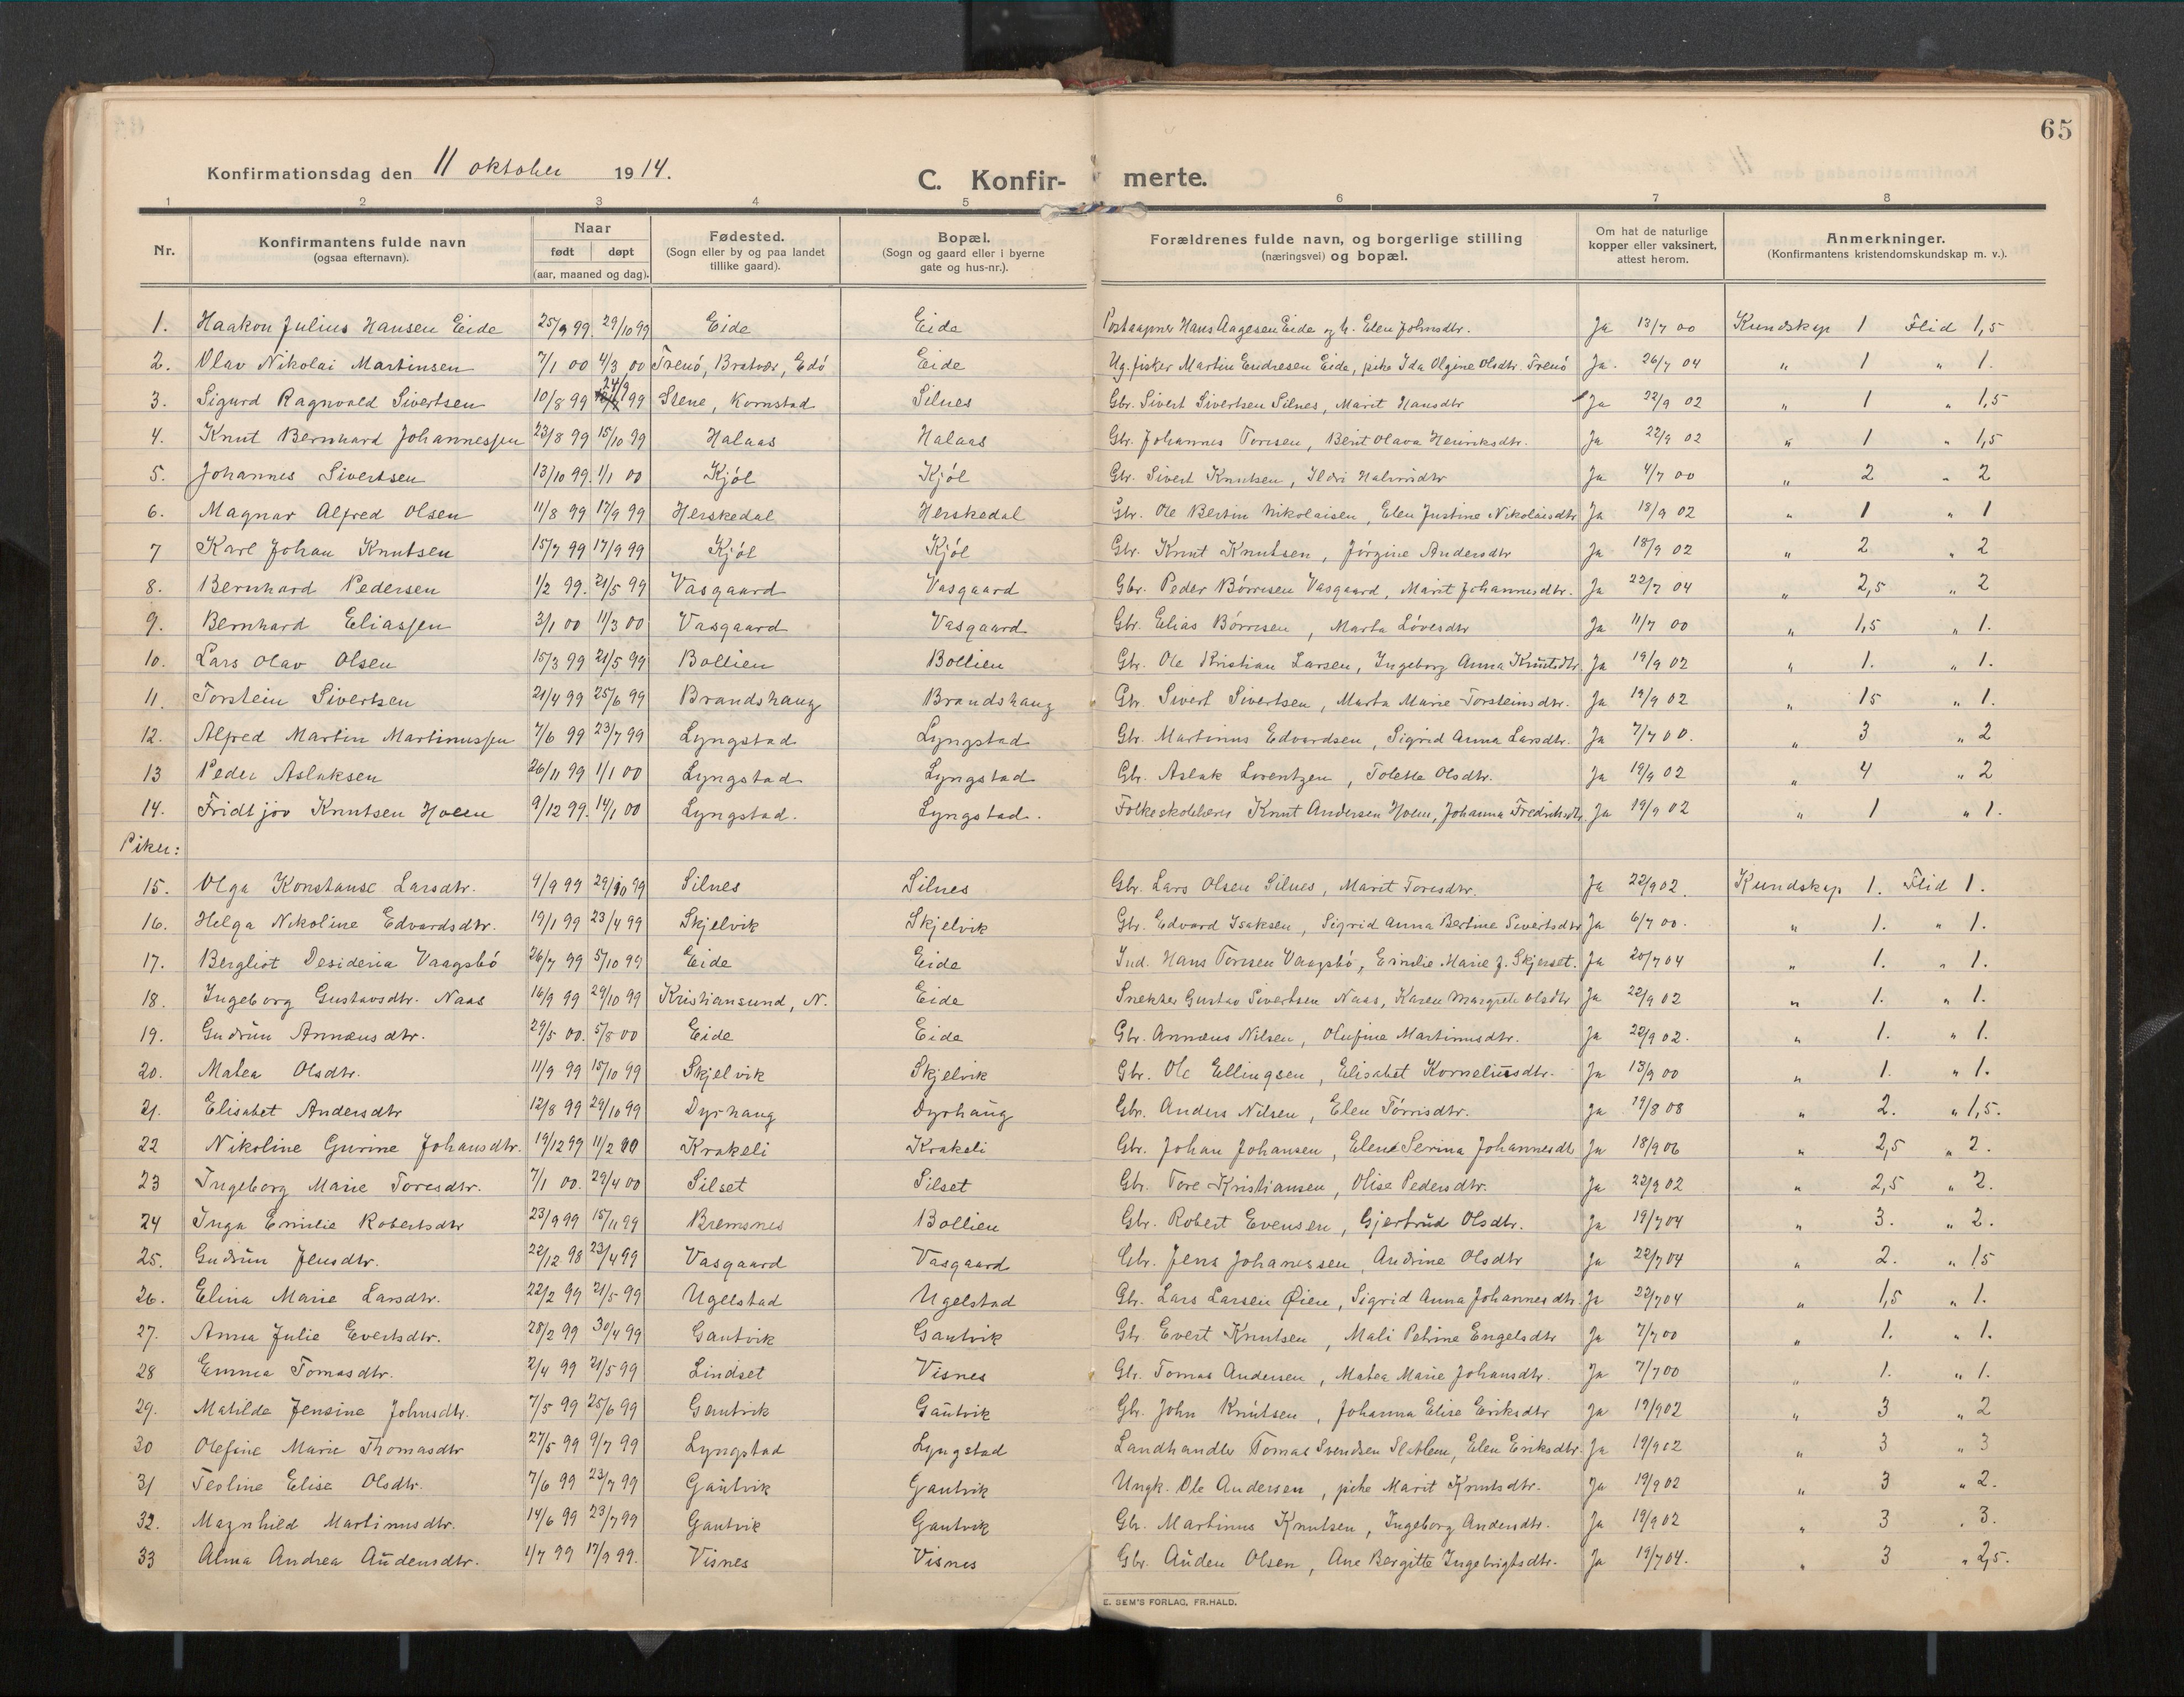 65
Konfirmationsdag den 11 oktober 1914.
C. Konfir- merte.
1 2 3 4 5 6 7 8
Nr. Konfirmantens fulde navn (ogsaa efternavn). Naar født døpt (aar, maaned og dag). Fødested. (Sogn eller by og paa landet tillike gaard). Bopæl. (Sogn og gaard eller i byerne gate og hus-nr.). Forældrenes fulde navn, og borgerlige stilling (næringsvei) og bopæl. Om hat de naturlige kopper eller vaksinert, attest herom. Anmerkninger. (Konfirmantens kristendomskundskap m. v.).
1. Haakon Julius Hansen Eide 25/9 99. 29/10 99 Eide Eide Postaapner Hans Aagesen Eide og h. Elen Johnsdtr. Ja 13/7 00 Kundskap 1 Flid 1,5
2. Olav Nikolai Martinsen 7/1 00 4/3 00 Frenö, Bratvær, Edö Eide Ug. fisker Martin Endresen Eide, pike Ida Olgine Olsdtr. Frenö Ja. 26/7 04 " 1 " 1.
3. Sigurd Ragnvald Sivertsen 10/8 99 24/9 99 Stene, Kornstad Silnes Gbr. Sivert Sivertsen Silnes, Marit Hansdtr Ja 22/9 02 " 1 " 1,5
4. Knut Bernhard Johannessen 23/8 99 15/10 99 Halaas Halaas Gbr. Johannes Toresen, Berit Olava Henriksdtr. Ja 22/9 02 " 1 " 1,5
5. Johannes Sivertsen 13/10 99. 1/1 00 Kjöl Kjöl Gbr. Sivert Knutsen, Ildri Halvorsdtr Ja 4/7 00 " 2 " 2
6. Magnar Alfred Olsen 11/8 99 17/9 99 Herskedal Herskedal Gbr. Ole Bertin Nikolaisen, Elen Justine Nikolaisdtr Ja 18/9 02 " 1 " 1
7 Karl Johan Knutsen 15/7 99 17/9 99 Kjöl Kjöl Gbr. Knut Knutsen, Jörgine Andersdtr Ja 18/9 02 " 2 " 2
8. Bernhard Pedersen 1/2 99. 21/5 99 Vasgaard Vasgaard Gbr. Peder Börresen Vasgaard, Marit Johannesdtr. Ja 22/7 04 " 2,5 " 2
9. Bernhard Eliassen 3/1 00 11/3 00 Vasgaard Vasgaard Gbr. Elias Börresen, Marta Lövesdtr Ja 11/7 00 " 1,5 " 1.
10. Lars Olav Olsen 15/3 99 21/5 99 Bollien Bollien Gbr. Ole Kristian Larsen, Ingeborg Anna Knutsdtr. Ja 19/9 02 " 1. " 1.
11. Torstein Sivertsen 21/4 99 25/6 99 Brandshaug Brandshaug Gbr. Sivert Sivertsen, Marta Marie Torsteinsdtr. Ja 19/9 02 " 15 " 1.
12. Alfred Martin Martinussen 7/6 99 23/7 99 Lyngstad Lyngstad Gbr. Martinus Edvardsen, Sigrid Anna Larsdtr. Ja 7/7 00. " 3 " 2
13 Peder Aslaksen 26/11 99 1/1 00 Lyngstad Lyngstad Gbr. Aslak Lorentzen, Tolette Olsdtr. Ja 19/9 02 " 4 " 2
14. Fridtjov Knutsen Hoem 9/12 99. 14/1 00 Lyngstad. Lyngstad. Folkeskolelærer Knut Andersen Hoem, Johanna Fredriksdtr. Ja 19/9 02 " 1 " 1.
Piker:
15. Olga Konstanse Larsdtr. 9/9 99 29/10 99 Silnes Silnes Gbr. Lars Olsen Silnes, Marit Toresdtr. Ja 22/9 02. Kundskap 1. Flid 1.
16. Helga Nikoline Edvardsdtr. 19/1 99 23/4 99 Skjelvik Skjelvik Gbr. Edvard Isaksen, Sigrid Anna Bertine Sivertsdtr Ja 6/7 00. " 1. " 1.
17. Bergliot Desideria Vaagsbö 26/7 99 5/10 99 Eide Eide Ind. Hans Toresen Vaagsbö, Emilie Marie J. Skjerset. Ja 20/7 04 " 1. " 1.
18. Ingeborg Gustavsdtr. Naas 16/9 99 29/10 99 Kristiansund, N. Eide Snekker Gustav Sivertsen Naas, Karen Margrete Olsdtr Ja 22/9 02 " 1. " 1.
19. Gudrun Annæusdtr. 29/5 00. 5/8 00 Eide Eide Gbr. Annæus Nilsen, Olufine Martinusdtr. Ja 22/9 02. " 1. " 1.
20. Matea Olsdtr. 11/9 99 15/10 99 Skjelvik Skjelvik Gbr. Ole Ellingsen, Elisabet Korneliusdtr. Ja 13/9 00 " 1. " 1.
21. Elisabet Andersdtr 12/8 99 29/10 99 Dyrhaug Dyrhaug Gbr. Anders Nilsen, Elen Törrisdtr. Ja 19/8 08 " 2. " 1,5.
22 Nikoline Gurine Johansdtr. 19/12 99 11/2 00 Krakeli Krakeli Gbr. Johan Johansen, Elene Serina Johannesdtr Ja 18/9 06 " 2,5 " 2.
23 Ingeborg Marie Toresdtr. 7/1 00. 29/4 00 Silset Silset Gbr. Tore Kristiansen, Olise Pedersdtr. Ja 22/9 02 " 2,5 " 2.
24 Inga Emilie Robertsdtr 23/9 99 15/11 99 Bremsnes Bollien Gbr. Robert Evensen, Gjertrud Olsdtr. Ja 19/7 04 " 3. " 2.
25. Gudrun Jensdtr. 22/12 98 23/4 99 Vasgaard Vasgaard Gbr. Jens Johanessen, Andrine Olsdtr Ja 22/7 04 " 2. " 15
26. Elina Marie Larsdtr. 22/2 99 21/5 99 Ugelstad Ugelstad Gbr. Lars Larsen Øien, Sigrid Anna Johannesdtr. Ja 22/7 04 " 1,5 " 1.
27. Anna Julie Evertsdtr. 28/2 99 30/4 99 Gautvik Gautvik Gbr. Evert Knutsen, Mali Petrine Engelsdtr Ja 7/7 00 " 1. " 1.
28 Emma Tomasdtr. 2/4 99 21/5 99 Lindset Visnes Gbr. Tomas Andersen, Matea Marie Johansdtr. Ja 7/7 00 " 1. " 1.
29. Matilde Jensine Johnsdtr. 7/5 99 25/6 99 Gautvik Gautvik Gbr. John Knutsen, Johanna Elise Eriksdtr Ja 19/9 02 " 3 " 2
30 Olefine Marie Thomasdtr 27/5 99 9/7 99 Lyngstad Lyngstad Landhandler Tomas Svendsen Sletlem, Elen Eriksdtr. Ja 19/9 02 " 3 " 3
31 Teoline Elise Olsdtr. 7/6 99 23/7 99 Gautvik Gautvik Ungk. Ole Andersen, pike Marit Knutsdtr. Ja 19/9 02 " 3 " 2.
32. Magnhild Martinusdtr. 14/6 99 23/7 99 Gautvik Gautvik Gbr. Martinus Knutsen, Ingeborg Andersdtr. Ja 19/9 02 " 3 " 3.
33 Alma Andrea Audensdtr. 1/7 99 17/9 99. Visnes Visnes Gbr. Auden Olsen, Ane Bergitte Ingebrigtsdtr. Ja 19/7 04. " 3 " 2,5.
E. SEM'S FORLAG, FR.HALD.